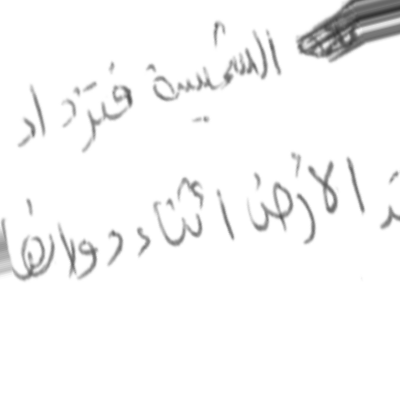 الشمسية فتزداد
الأرض اثناء دورانها